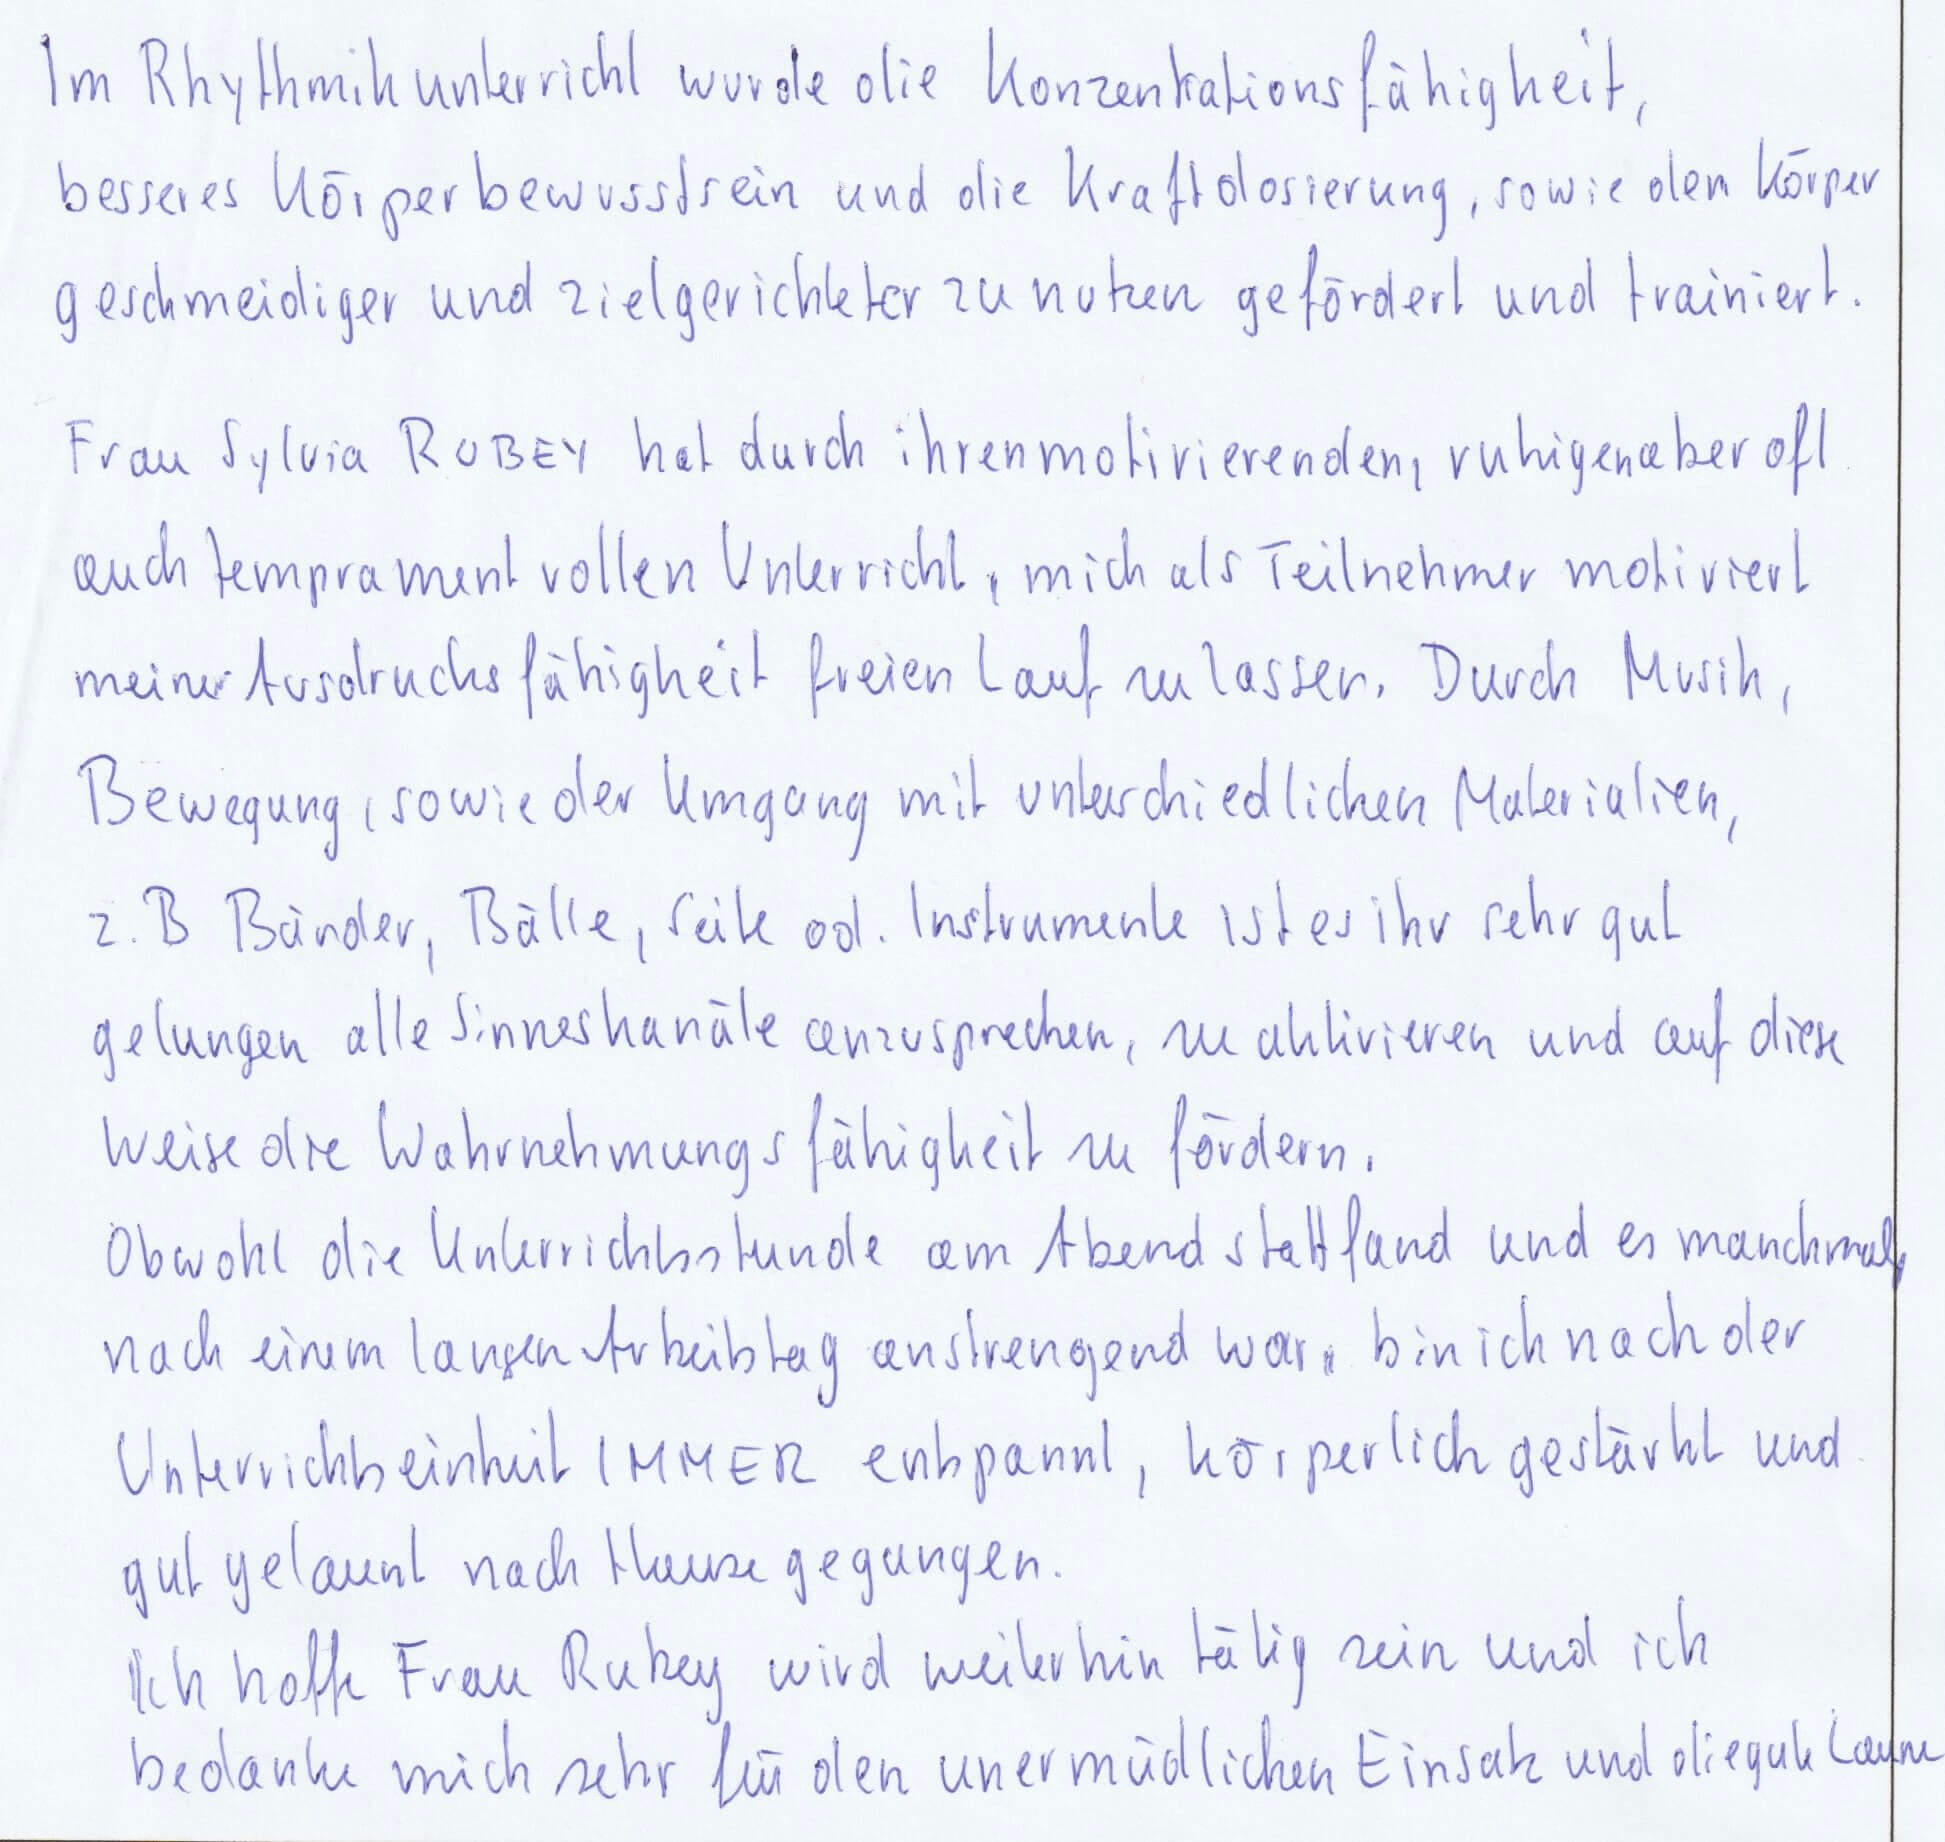 Im Rhythmikunterricht wurde die Konzentrationsfähigkeit,
besseres Körperbewusstsein und die Kraftdosierung, sowie den Körper
geschmeidiger und zielgerichteter zu nutzen gefördert und trainiert.
Frau Sylvia RUBEY hat durch ihren motivierenden, ruhigen aber oft
auch temprament vollen Unterricht, mich als Teilnehmer motiviert
meiner Ausdrucksfähigkeit freien Lauf zu lassen. Durch Musik,
Bewegung, sowie der Umgang mit unterschiedlichen Materialien,
z.B Bänder, Bälle, Seile od. Instrumente ist es ihr sehr gut
gelungen alle Sinneskanäle anzusprechen, zu aktivieren und auf diese
Weise die Wahrnehmungsfähigkeit zu fördern.
Obwohl die Unterrichtsstunde am Abend stattfand und es manchmal,
nach einem langen Arbeitstag anstrengend war, bin ich nach der
Unterrichtseinheit IMMER entspannt, körperlich gestärkt und
gut gelaunt nach Hause gegangen.
Ich hoffe Frau Rubey wird weiterhin tätig sein und ich
bedanke mich sehr für den unermüdlichen Einsatz und die gute Laune